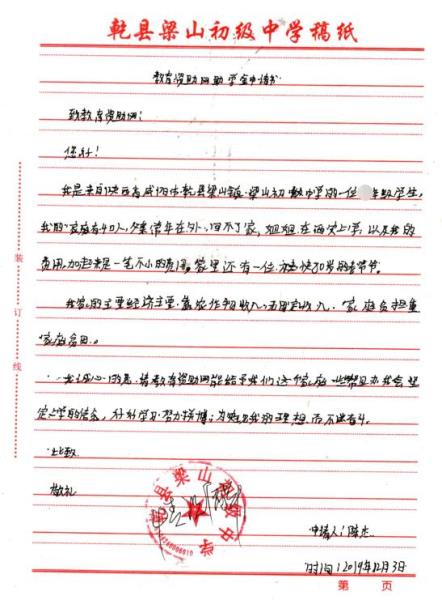 乾县梁山初级中学稿纸
教育资助网助学金申请书
致教育资助网:
您好!
我是来自陕西省咸阳市乾县梁山镇梁山初级中学的一位 年级学生,
我的家庭有4口人,父亲常年在外,回不了家,姐姐在西安上学,以及我的
费用加起来是一笔不小的费用。家里还有一位 快70岁的爷爷。
我家的主要经济主要靠农作物收入,无固定收入,家庭负担重
家庭贫困。
我诚心的恳请教育资助网能给予我们这个家庭一些帮助,我会坚
定上学的信念,好好学习努力拼搏,为实现我的理想而不断奋斗。
此致
敬礼
乾县梁山初级中学
申请人:陈杰
时间:2019年12月3日
第 页
装
订
线